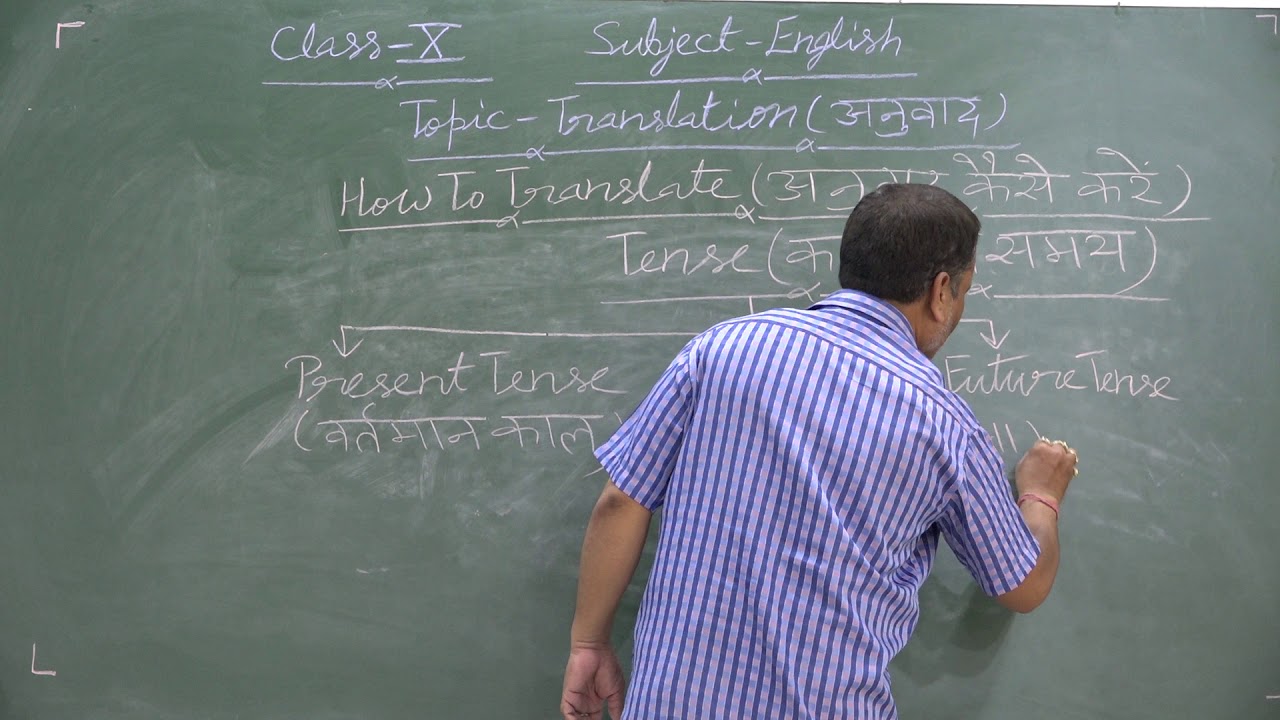 Class-X Subject-English
Topic-Translation (अनुवाद)
How To Translate (कैसे करें)
Tense ( समय)
Present Tense Future Tense
(वर्तमान काल)